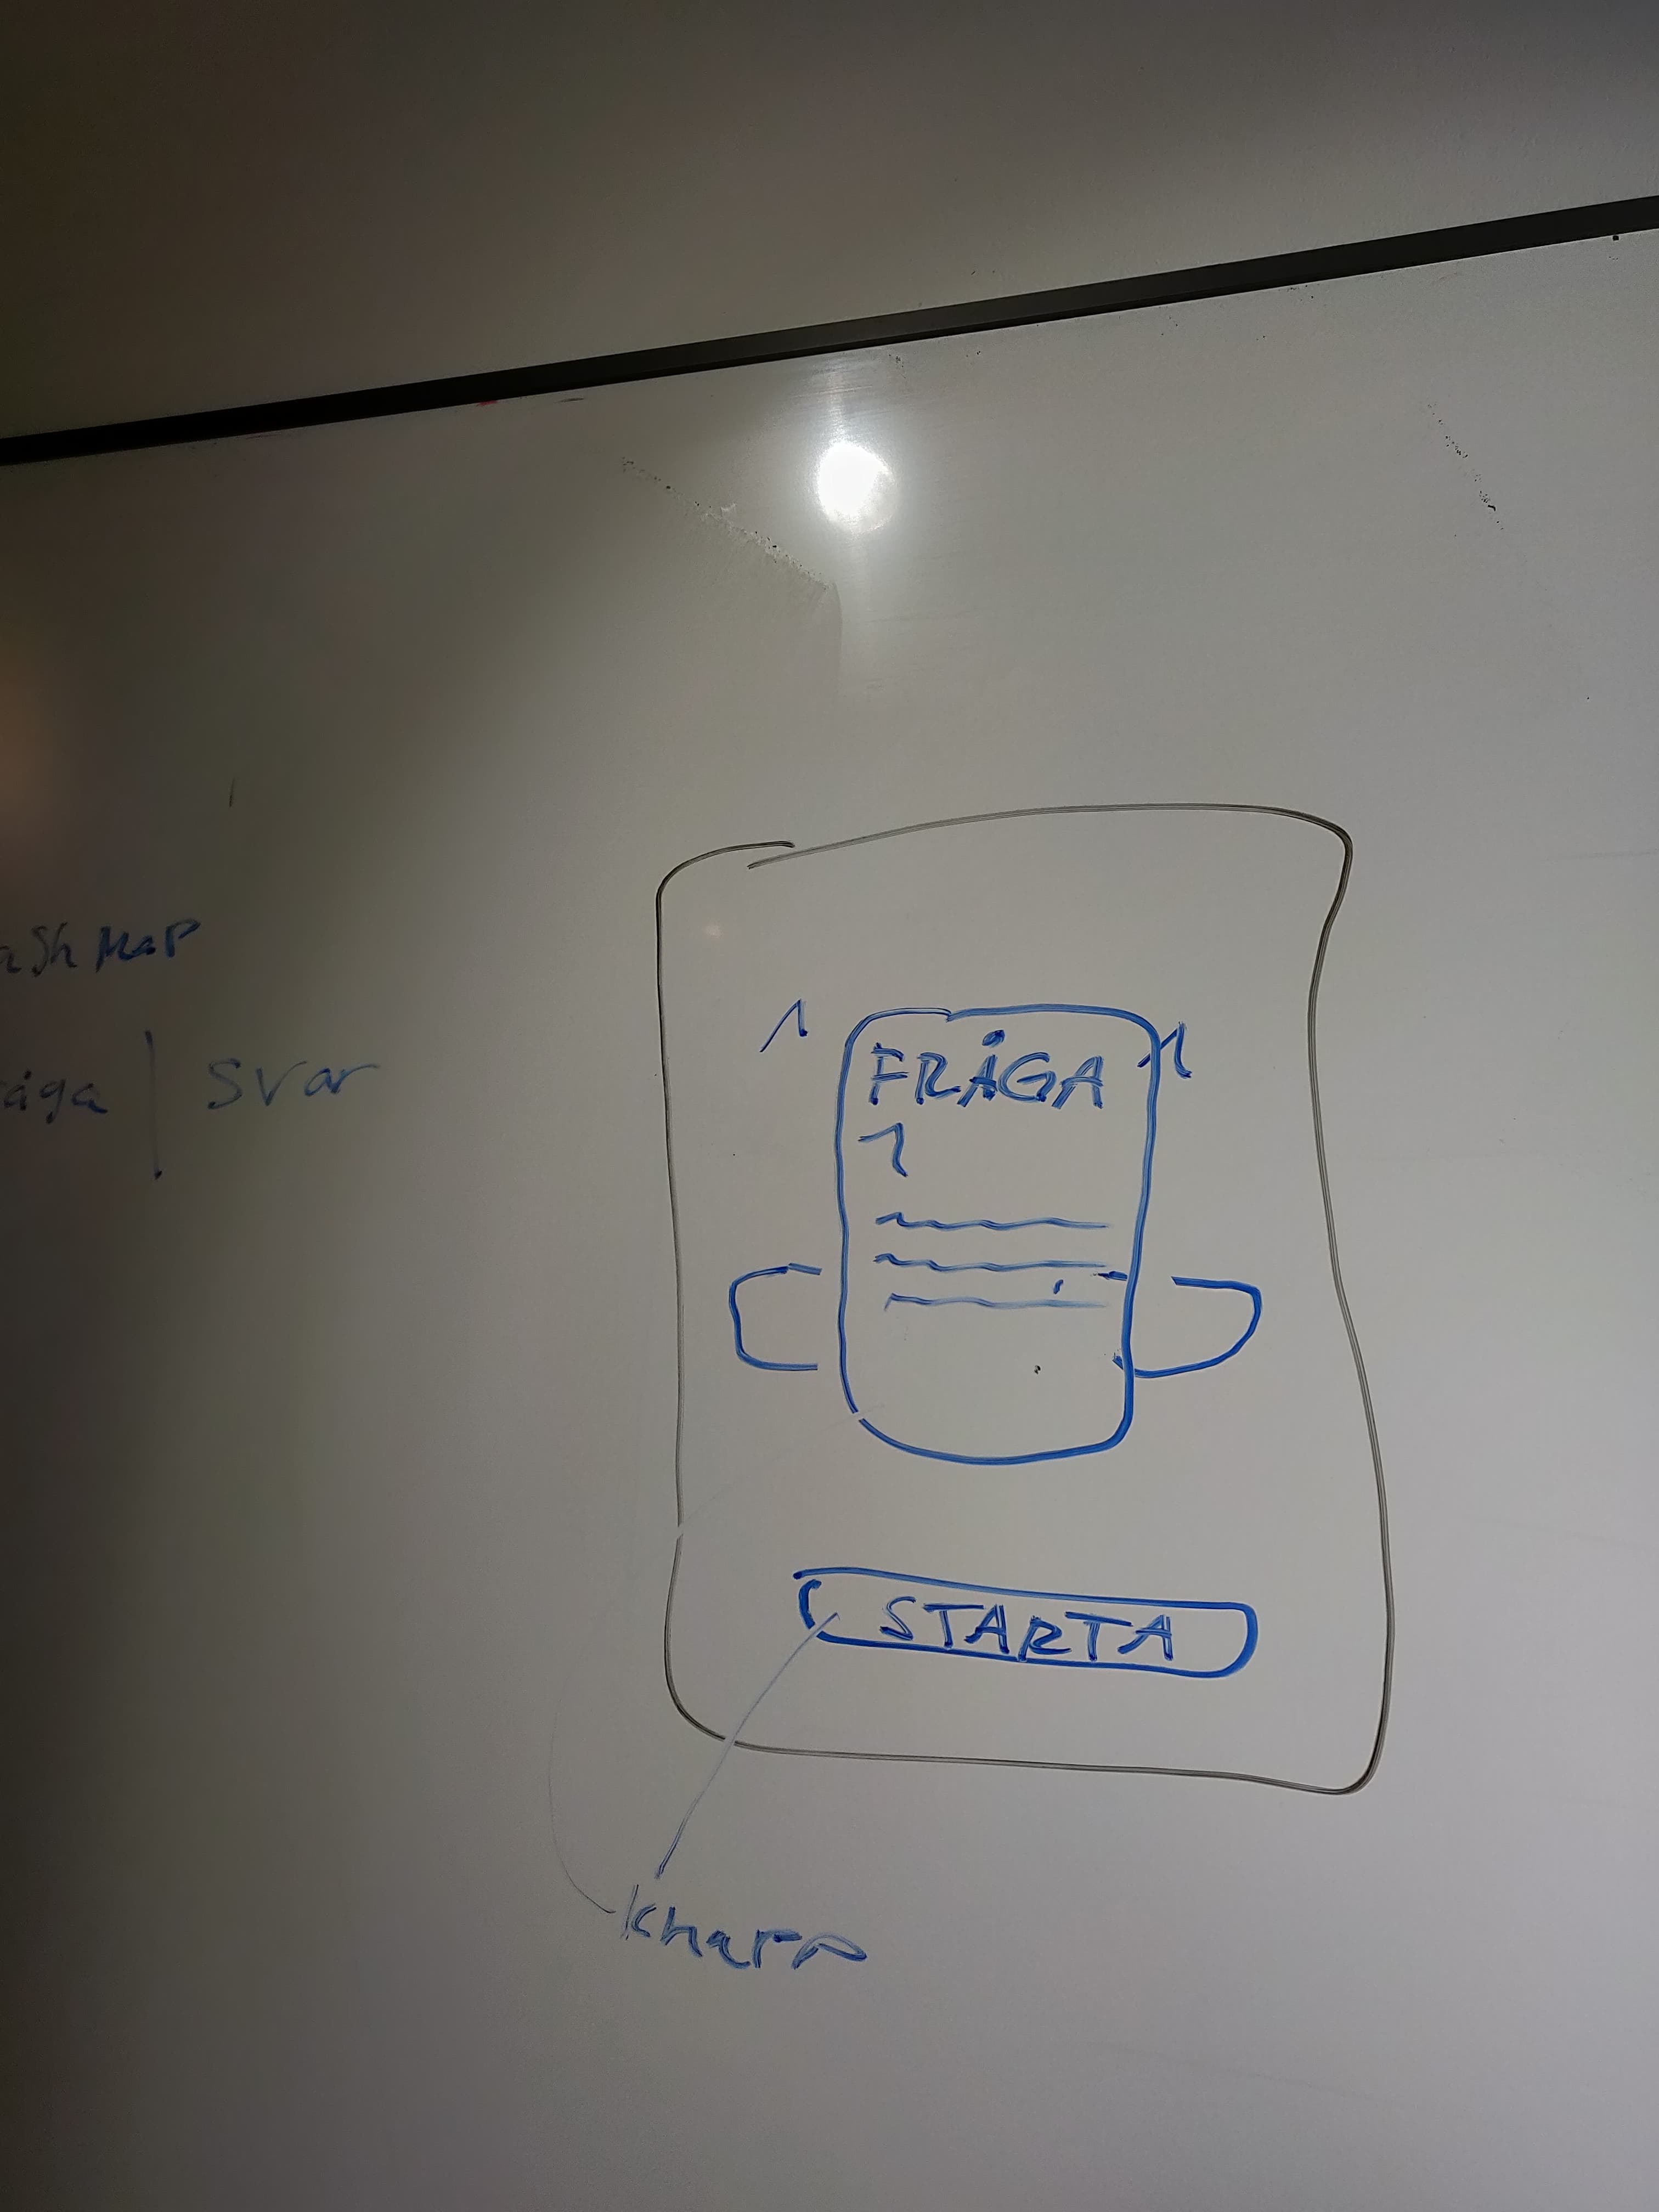 ashMap
råga | Svar
FRÅGA
1
STARTA
Knapp